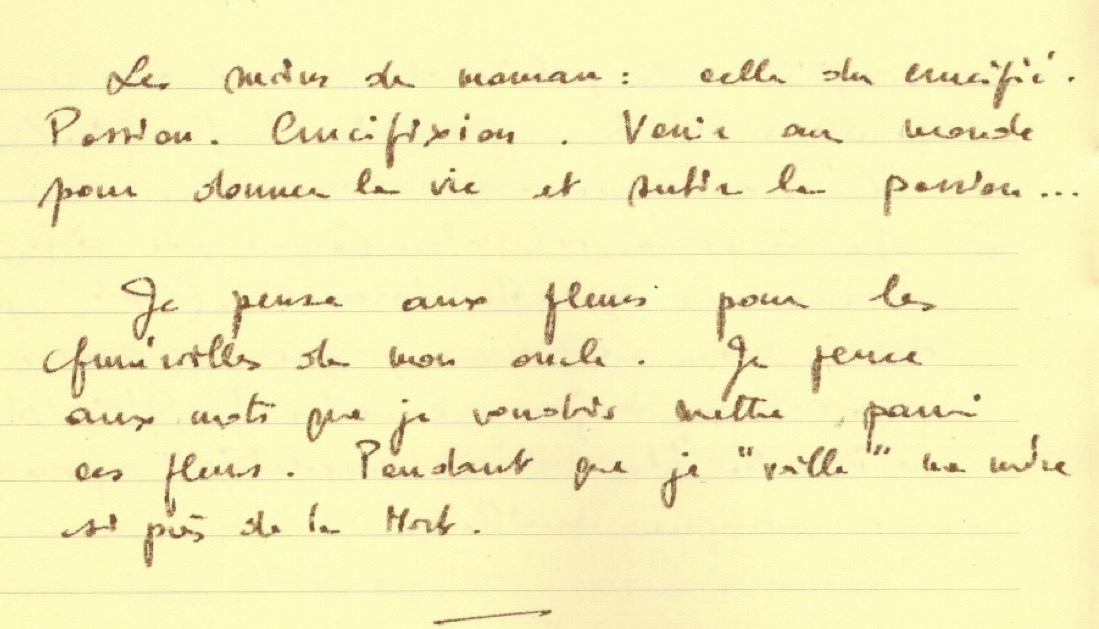 Les mains de maman : celle du crucifié.
Passion. Crucifixion. Venir au monde
pour donner la vie et subir la passion...
Je pense aux fleurs pour les
funérailles de mon oncle. Je pense
aux mots que je voudrais mettre parmi
ces fleurs. Pendant que je "veille" ma mère
si près de la Mort.